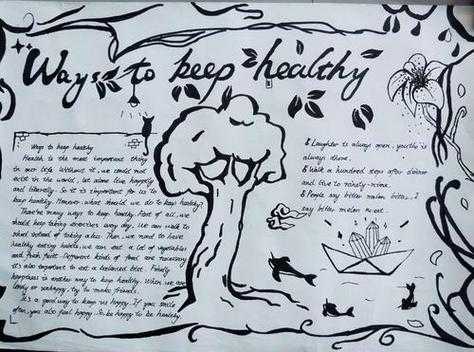 Ways to keep healthy
Ways to keep healthy
Health is the most important thing
in our life. Without it, we could not
exist in the world, let alone live happily
and liberally. So it is important for us to
keep healthy. However, what should we do to keep healthy?
There're many ways to keep healthy. First of all, we
should keep taking exercises every day. We can walk to
school instead of taking a bus. Then, we need to have
healthy eating habits, we can eat a lot of vegetables
and fresh fruit. Different kinds of food are necessary
it's also important to eat a balanced diet. Finally
happiness is another way to keep healthy. When we are
lonely or unhappy, try to make friends.
It's a good way to keep us happy. If you smile
often, you also feel happy. So be happy to be healthy.
& Laughter is always open, youth is
always there.
& Walk a hundred steps after dinner
and live to ninety-nine.
& People say bitter melon bitter, I
say bitter melon sweet.